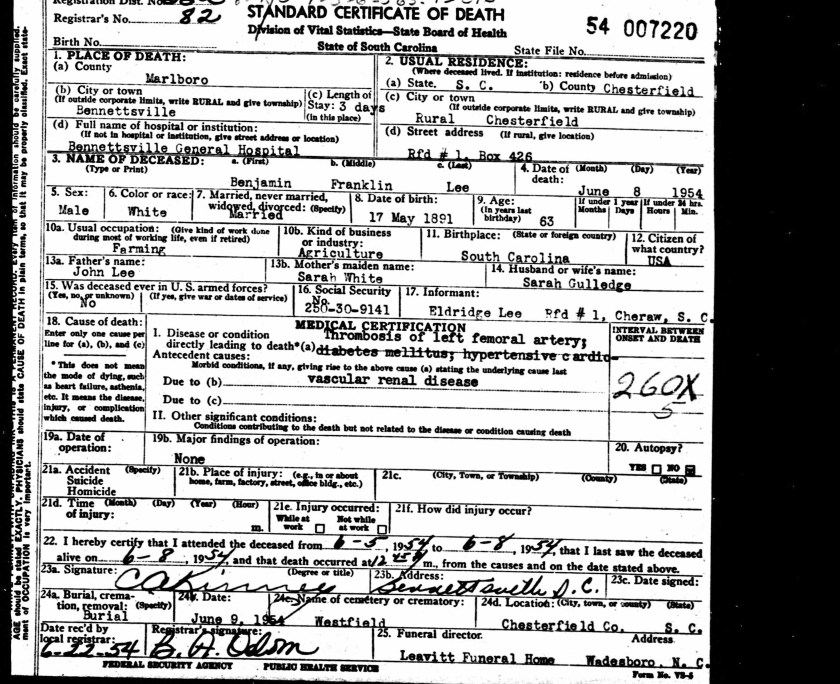 Registration Dist. No.
Registrar's No. 82 STANDARD CERTIFICATE OF DEATH 54 007220
Division of Vital Statistics—State Board of Health
Birth No. State of South Carolina State File No.
1. PLACE OF DEATH:
(a) County
Marlboro
(b) City or town
(If outside corporate limits, write RURAL and give township)
Bennettsville
(c) Length of
Stay: 3 days
(in this place)
(d) Full name of hospital or institution:
(If not in hospital or institution, give street address or location)
Bennettsville General Hospital
2. USUAL RESIDENCE:
(Where deceased lived. If institution: residence before admission)
(a) State. S. C. b) County Chesterfield
(c) City or town
(If outside corporate limits, write RURAL and give township)
Rural Chesterfield
(d) Street address (If rural, give location)
Rfd # 1, Box 426
3. NAME OF DECEASED: a. (First) b. (Middle) c. (Last)
(Type or Print)
Benjamin Franklin Lee
4. Date of (Month) (Day) (Year)
death:
June 8 1954
5. Sex:
Male
6. Color or race:
White
7. Married, never married,
widowed, divorced: (Specify)
Married
8. Date of birth:
17 May 1891
9. Age:
(In years last
birthday) 63
If under 1 year If under 24 hrs.
Months Days Hours Min.
10a. Usual occupation: (Give kind of work done
during most of working life, even if retired)
Farming
10b. Kind of business
or industry:
Agriculture
11. Birthplace: (State or foreign country)
South Carolina
12. Citizen of
what country?
USA
13a. Father's name:
John Lee
13b. Mother's maiden name:
Sarah White
14. Husband or wife's name:
Sarah Gulledge
15. Was deceased ever in U. S. armed forces?
(Yes, no, or unknown) (If yes, give war or dates of service)
No
16. Social Security
No.
250-30-9141
17. Informant:
Eldridge Lee Rfd # 1, Cheraw, S. C.
18. Cause of death:
Enter only one cause per
line for (a), (b), and (c)
* This does not mean
the mode of dying, such
as heart failure, asthenia,
etc. It means the disease,
injury, or complication
which caused death.
MEDICAL CERTIFICATION
I. Disease or condition Thrombosis of left femoral artery;
directly leading to death*(a) diabetes mellitus; hypertensive cardio-
Antecedent causes:
Morbid conditions, if any, giving rise to the above cause (a) stating the underlying cause last
Due to (b) vascular renal disease
Due to (c)
II. Other significant conditions:
Conditions contributing to the death but not related to the disease or condition causing death
INTERVAL BETWEEN
ONSET AND DEATH
260X
5
19a. Date of
operation:
19b. Major findings of operation:
None
20. Autopsy?
YES NO
21a. Accident (Specify)
Suicide
Homicide
21b. Place of injury: (e.g., in or about
home, farm, factory, street, office bldg., etc.)
21c. (City, Town, or Township) (County) (State)
21d. Time (Month) (Day) (Year) (Hour)
of injury: m.
21e. Injury occurred:
While at Not while
work at work
21f. How did injury occur?
22. I hereby certify that I attended the deceased from 6-5, 1954 to 6-8, 1954, that I last saw the deceased
alive on 6-8, 1954, and that death occurred at m., from the causes and on the date stated above.
23a. Signature: (Degree or title)
23b. Address:
Bennettsville S.C.
23c. Date signed:
24a. Burial, crema-
tion, removal: (Specify)
Burial
24b. Date:
June 9, 1954
24c. Name of cemetery or crematory:
Westfield
24d. Location: (City, town, or county) (State)
Chesterfield Co. S. C.
Date rec'd by
local registrar:
6-22-54
Registrar's signature:
B. H. Odom
25. Funeral director. Address
Leavitt Funeral Home Wadesboro, N. C.
FEDERAL SECURITY AGENCY PUBLIC HEALTH SERVICE
Form No. VS-5